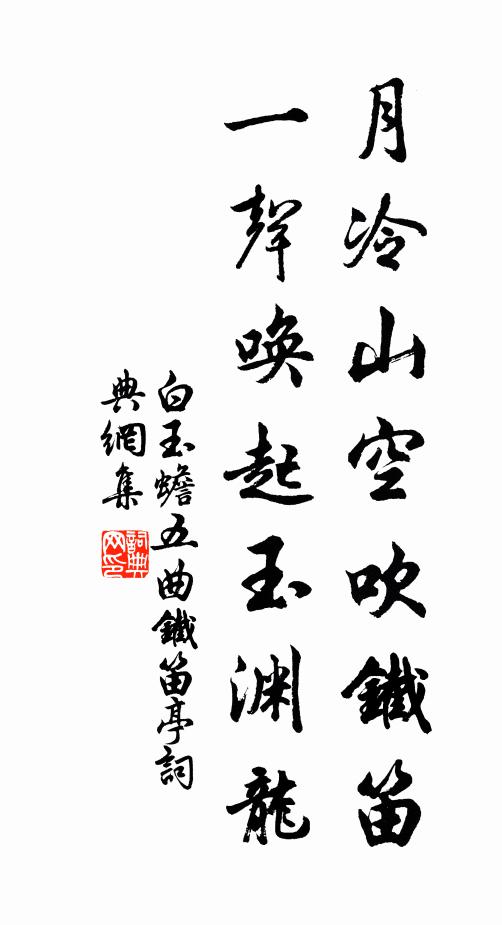 月冷山空吹鐵笛
一聲喚起玉淵龍
白玉蟾五曲鐵笛亭詞
典網集
詞典
网印